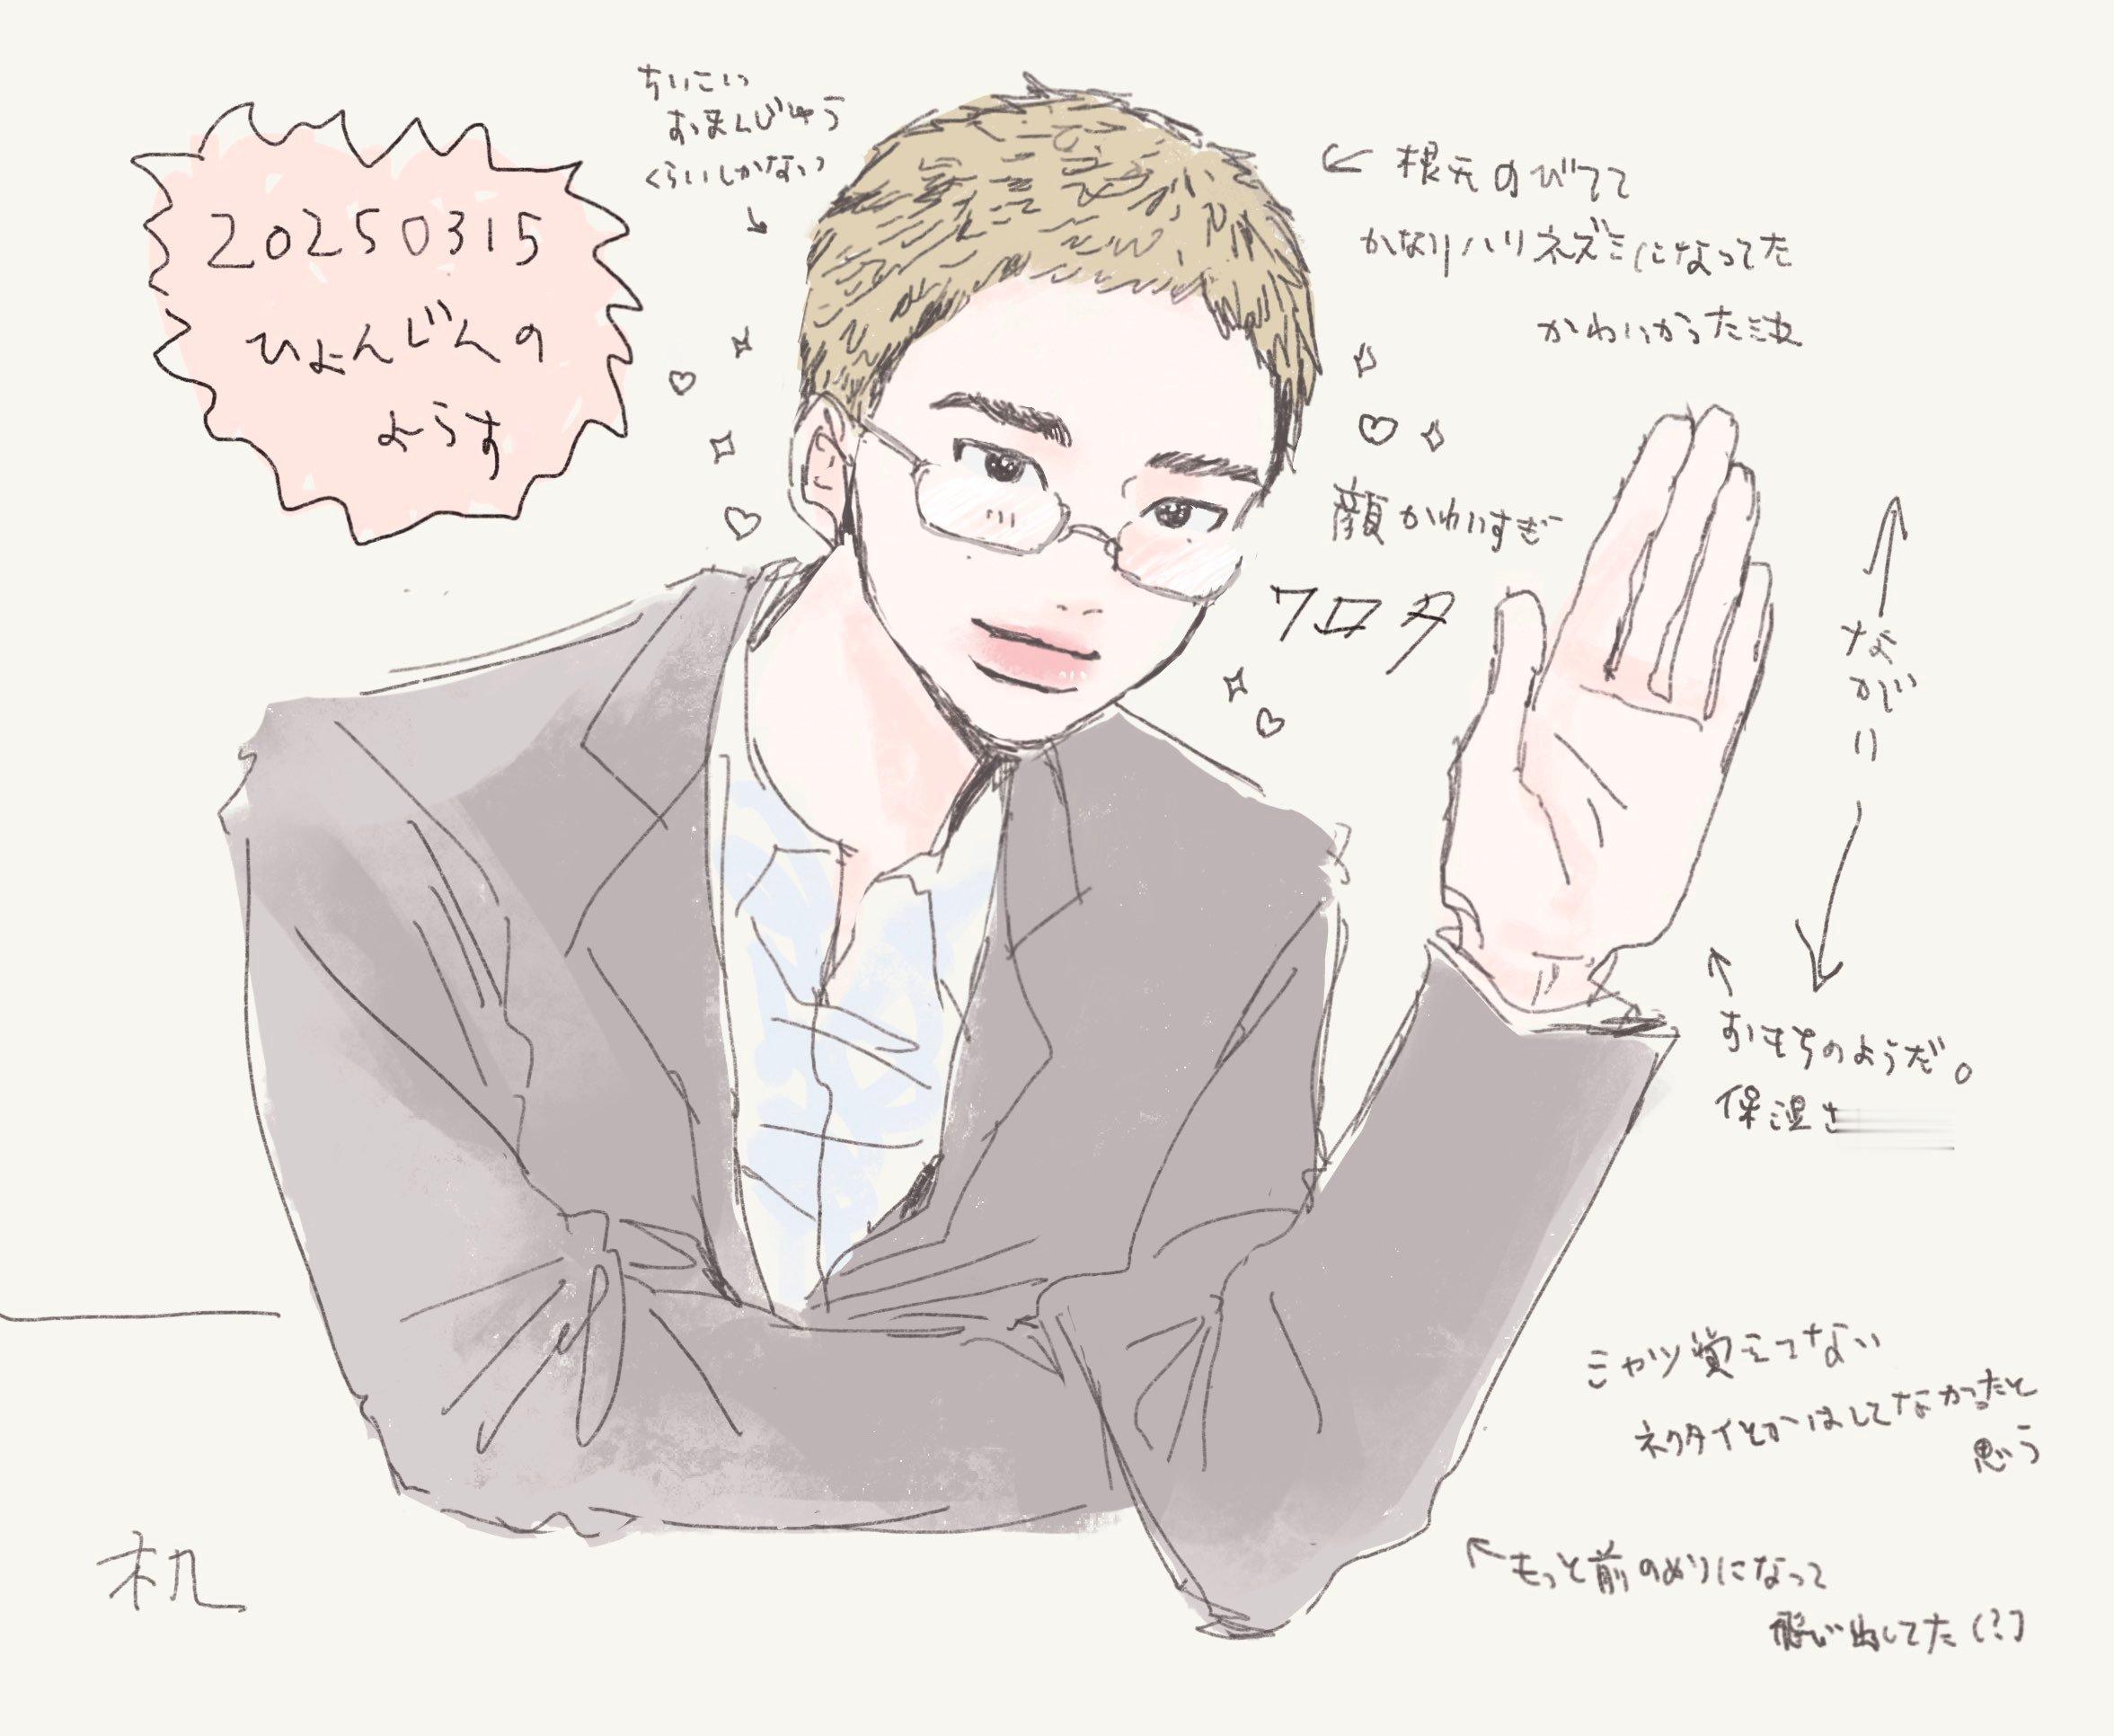 20250315
ひょんじんの
ようす
ちいこい
おまんじゅう
くらいしかない
← 根元のびてて
かなりハリネズミになってた
かわいかった涙
顔かわいすぎ
ワロタ
ながい
おもちのようだ。
保湿さ
シャツ覚えてない
ネクタイとかはしてなかったと
思う
←もっと前のめりになって
飛び出してた(?)
机